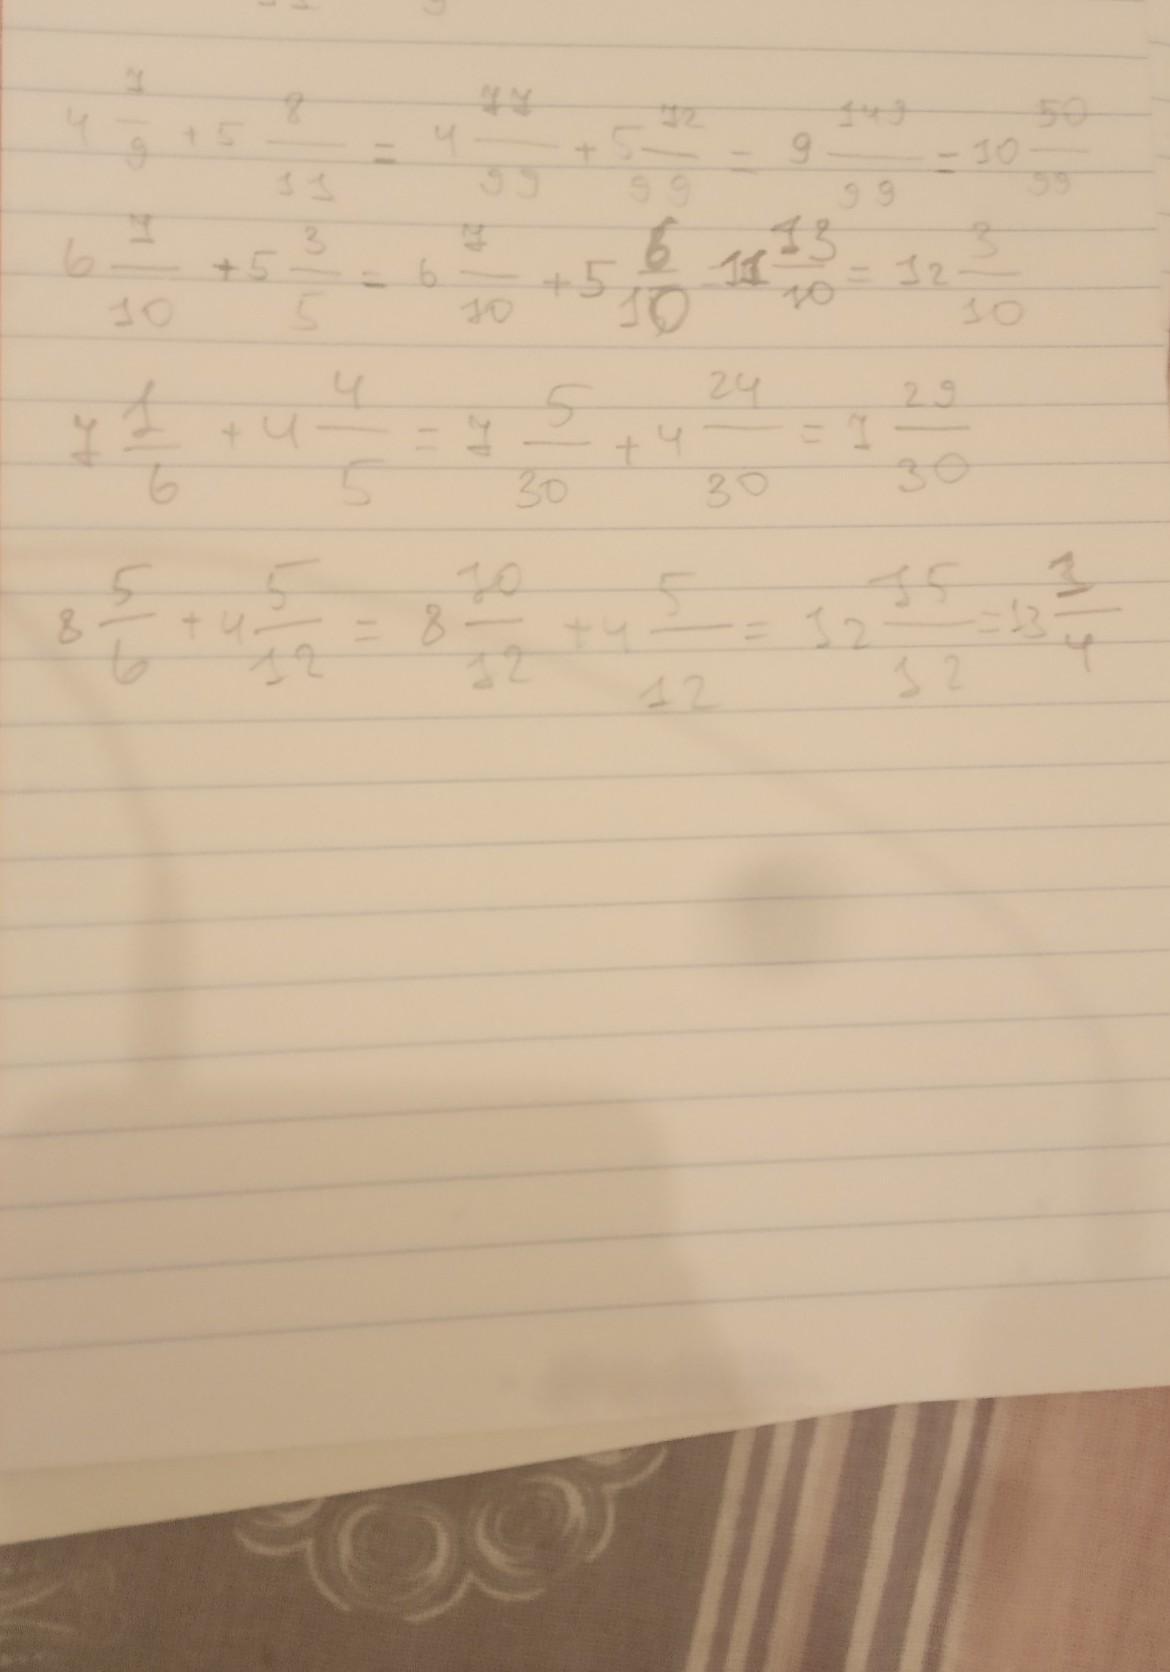 4 7/9 + 5 8/11 = 4 77/99 + 5 72/99 = 9 149/99 = 10 50/99
6 7/10 + 5 3/5 = 6 7/10 + 5 6/10 = 11 13/10 = 12 3/10
7 1/6 + 4 4/5 = 7 5/30 + 4 24/30 = 7 29/30
8 5/6 + 4 5/12 = 8 10/12 + 4 5/12 = 12 15/12 = 13 1/4